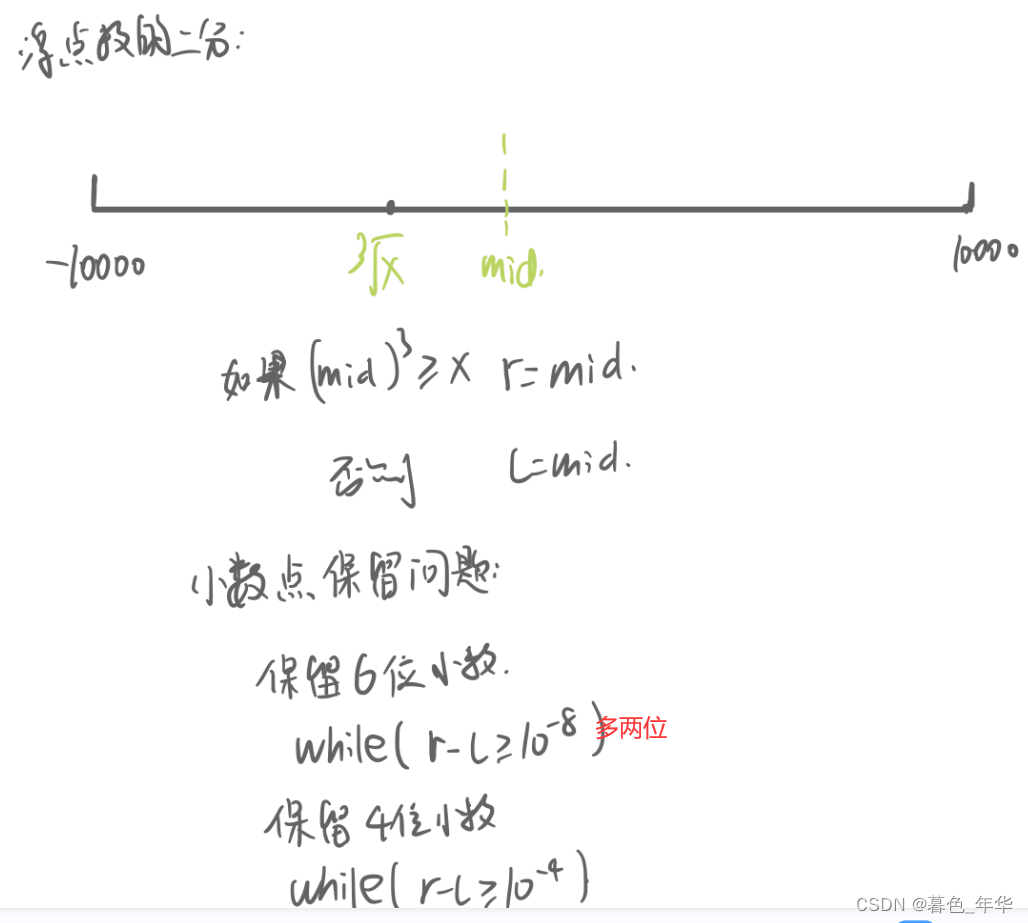 浮点数的二分:
-10000
∛x
mid.
10000
如果 (mid)³ ≥ x r = mid.
否则 l = mid.
小数点保留问题:
保留6位小数.
while( r - l ≥ 10⁻⁸ ) 多两位
保留4位小数
while( r - l ≥ 10⁻⁴ )
CSDN @暮色_年华